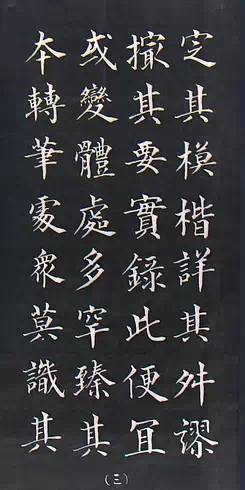 定其模楷詳其舛謬
撮其要實錄此便冝
或變體處多罕臻其
本轉筆處眾莫識其
（三）